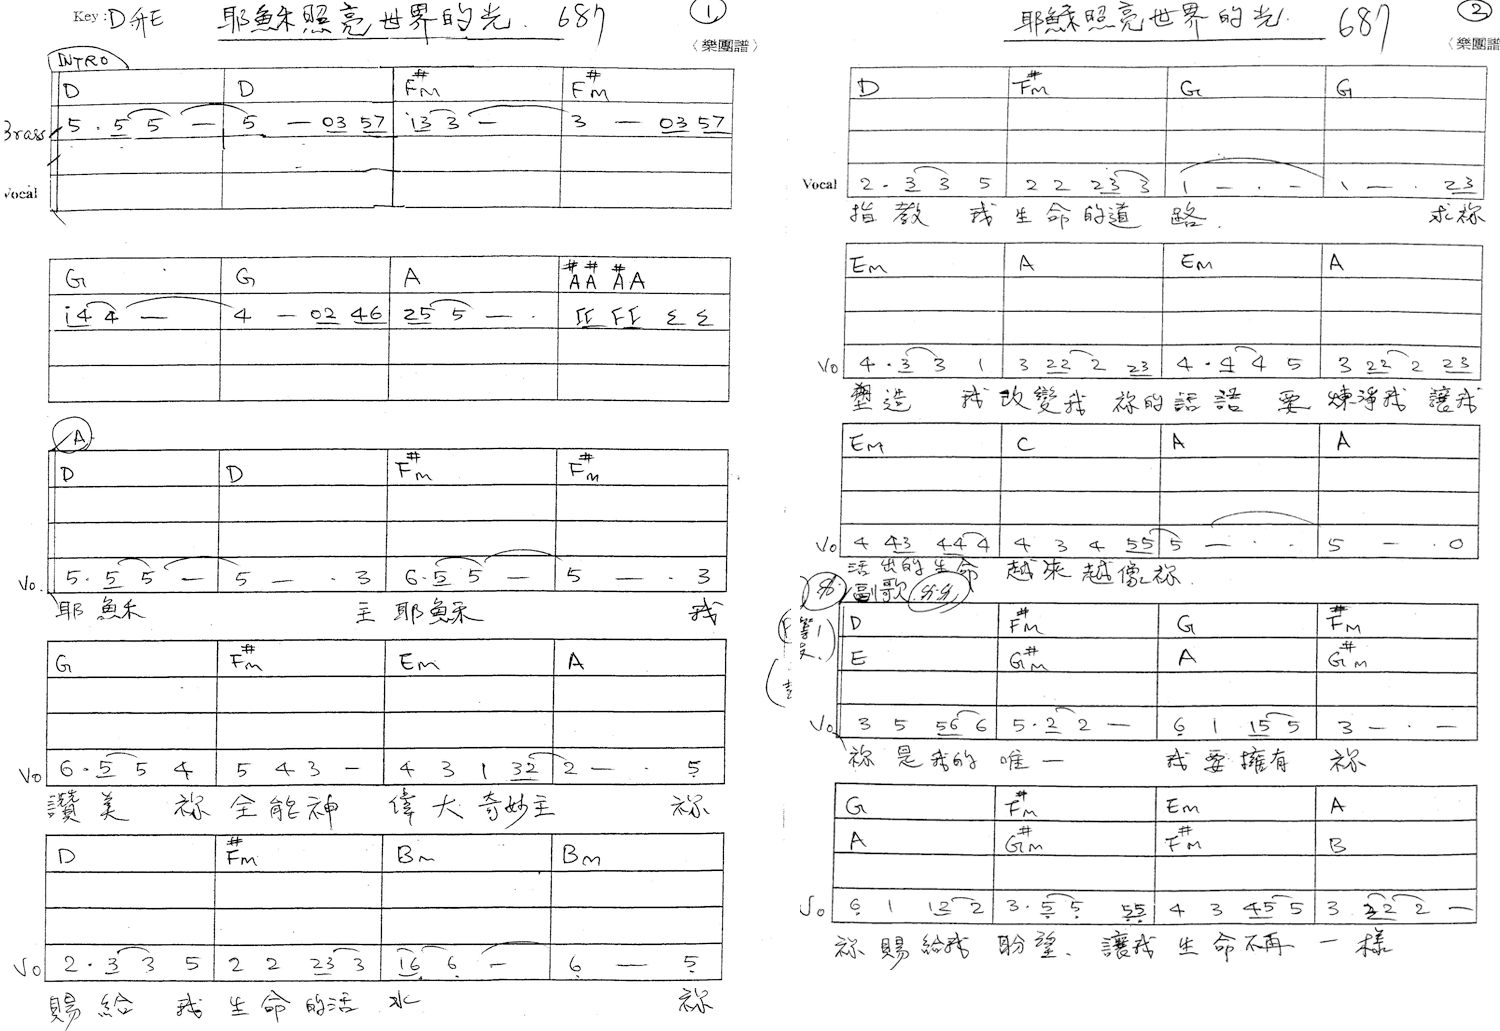 Key : D 升E 耶穌照亮世界的光. 687 ①
〈樂團譜〉
INTRO
D D F#m F#m
Brass 5 . 5 5 — 5 — 03 57 i3 3 — 3 — 03 57
Vocal
G G A #A A #A A
i4 4 — 4 — 02 46 25 5 — .
A
D D F#m F#m
Vo. 5 . 5 5 — 5 — . 3 6 . 5 5 — 5 — . 3
耶 穌 主 耶 穌 我
G F#m Em A
Vo 6 . 5 5 4 5 4 3 — 4 3 1 32 2 — . 5
讚 美 祢 全 能 神 偉 大 奇妙主 祢
D F#m Bm Bm
Vo 2 . 3 3 5 2 2 23 3 16 6 — 6 — 5
賜 給 我 生 命 的活 水 祢
耶穌照亮世界的光. 687 ②
〈樂團譜〉
D F#m G G
Vocal 2 . 3 3 5 2 2 23 3 1 — . — 1 — . 23
指 教 我 生 命 的道 路. 求祢
Em A Em A
Vo 4 . 3 3 1 3 22 2 23 4 . 4 4 5 3 22 2 23
塑 造 我 改變我 祢的話語 要 煉淨我 讓我
Em C A A
Vo 4 43 44 4 4 3 4 55 5 — . . 5 — . 0
活出的生命 越來越像祢.
副歌
D F#m G F#m
E G#m A G#m
Vo. 3 5 56 6 5 . 2 2 — 6 1 15 5 3 — . —
祢 是 我的 唯一 我 要 擁有 祢
G F#m Em A
A G#m F#m B
Vo 6 1 12 2 3 . 5 5 55 4 3 45 5 3 22 2 —
祢 賜 給我 盼望. 讓我 生命不再 一 樣